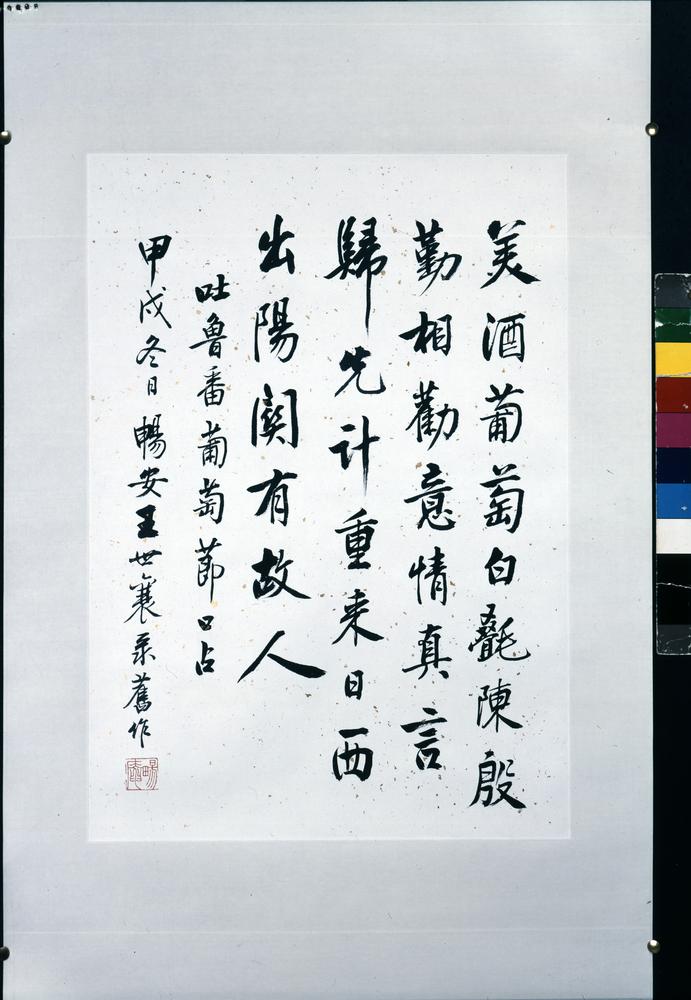 美酒葡萄白㲲陳殷
勤相勸意情真言
歸先計重来日西
出陽関有故人
吐魯番葡萄節口占
甲戌冬日暢安王世襄录舊作
暢安